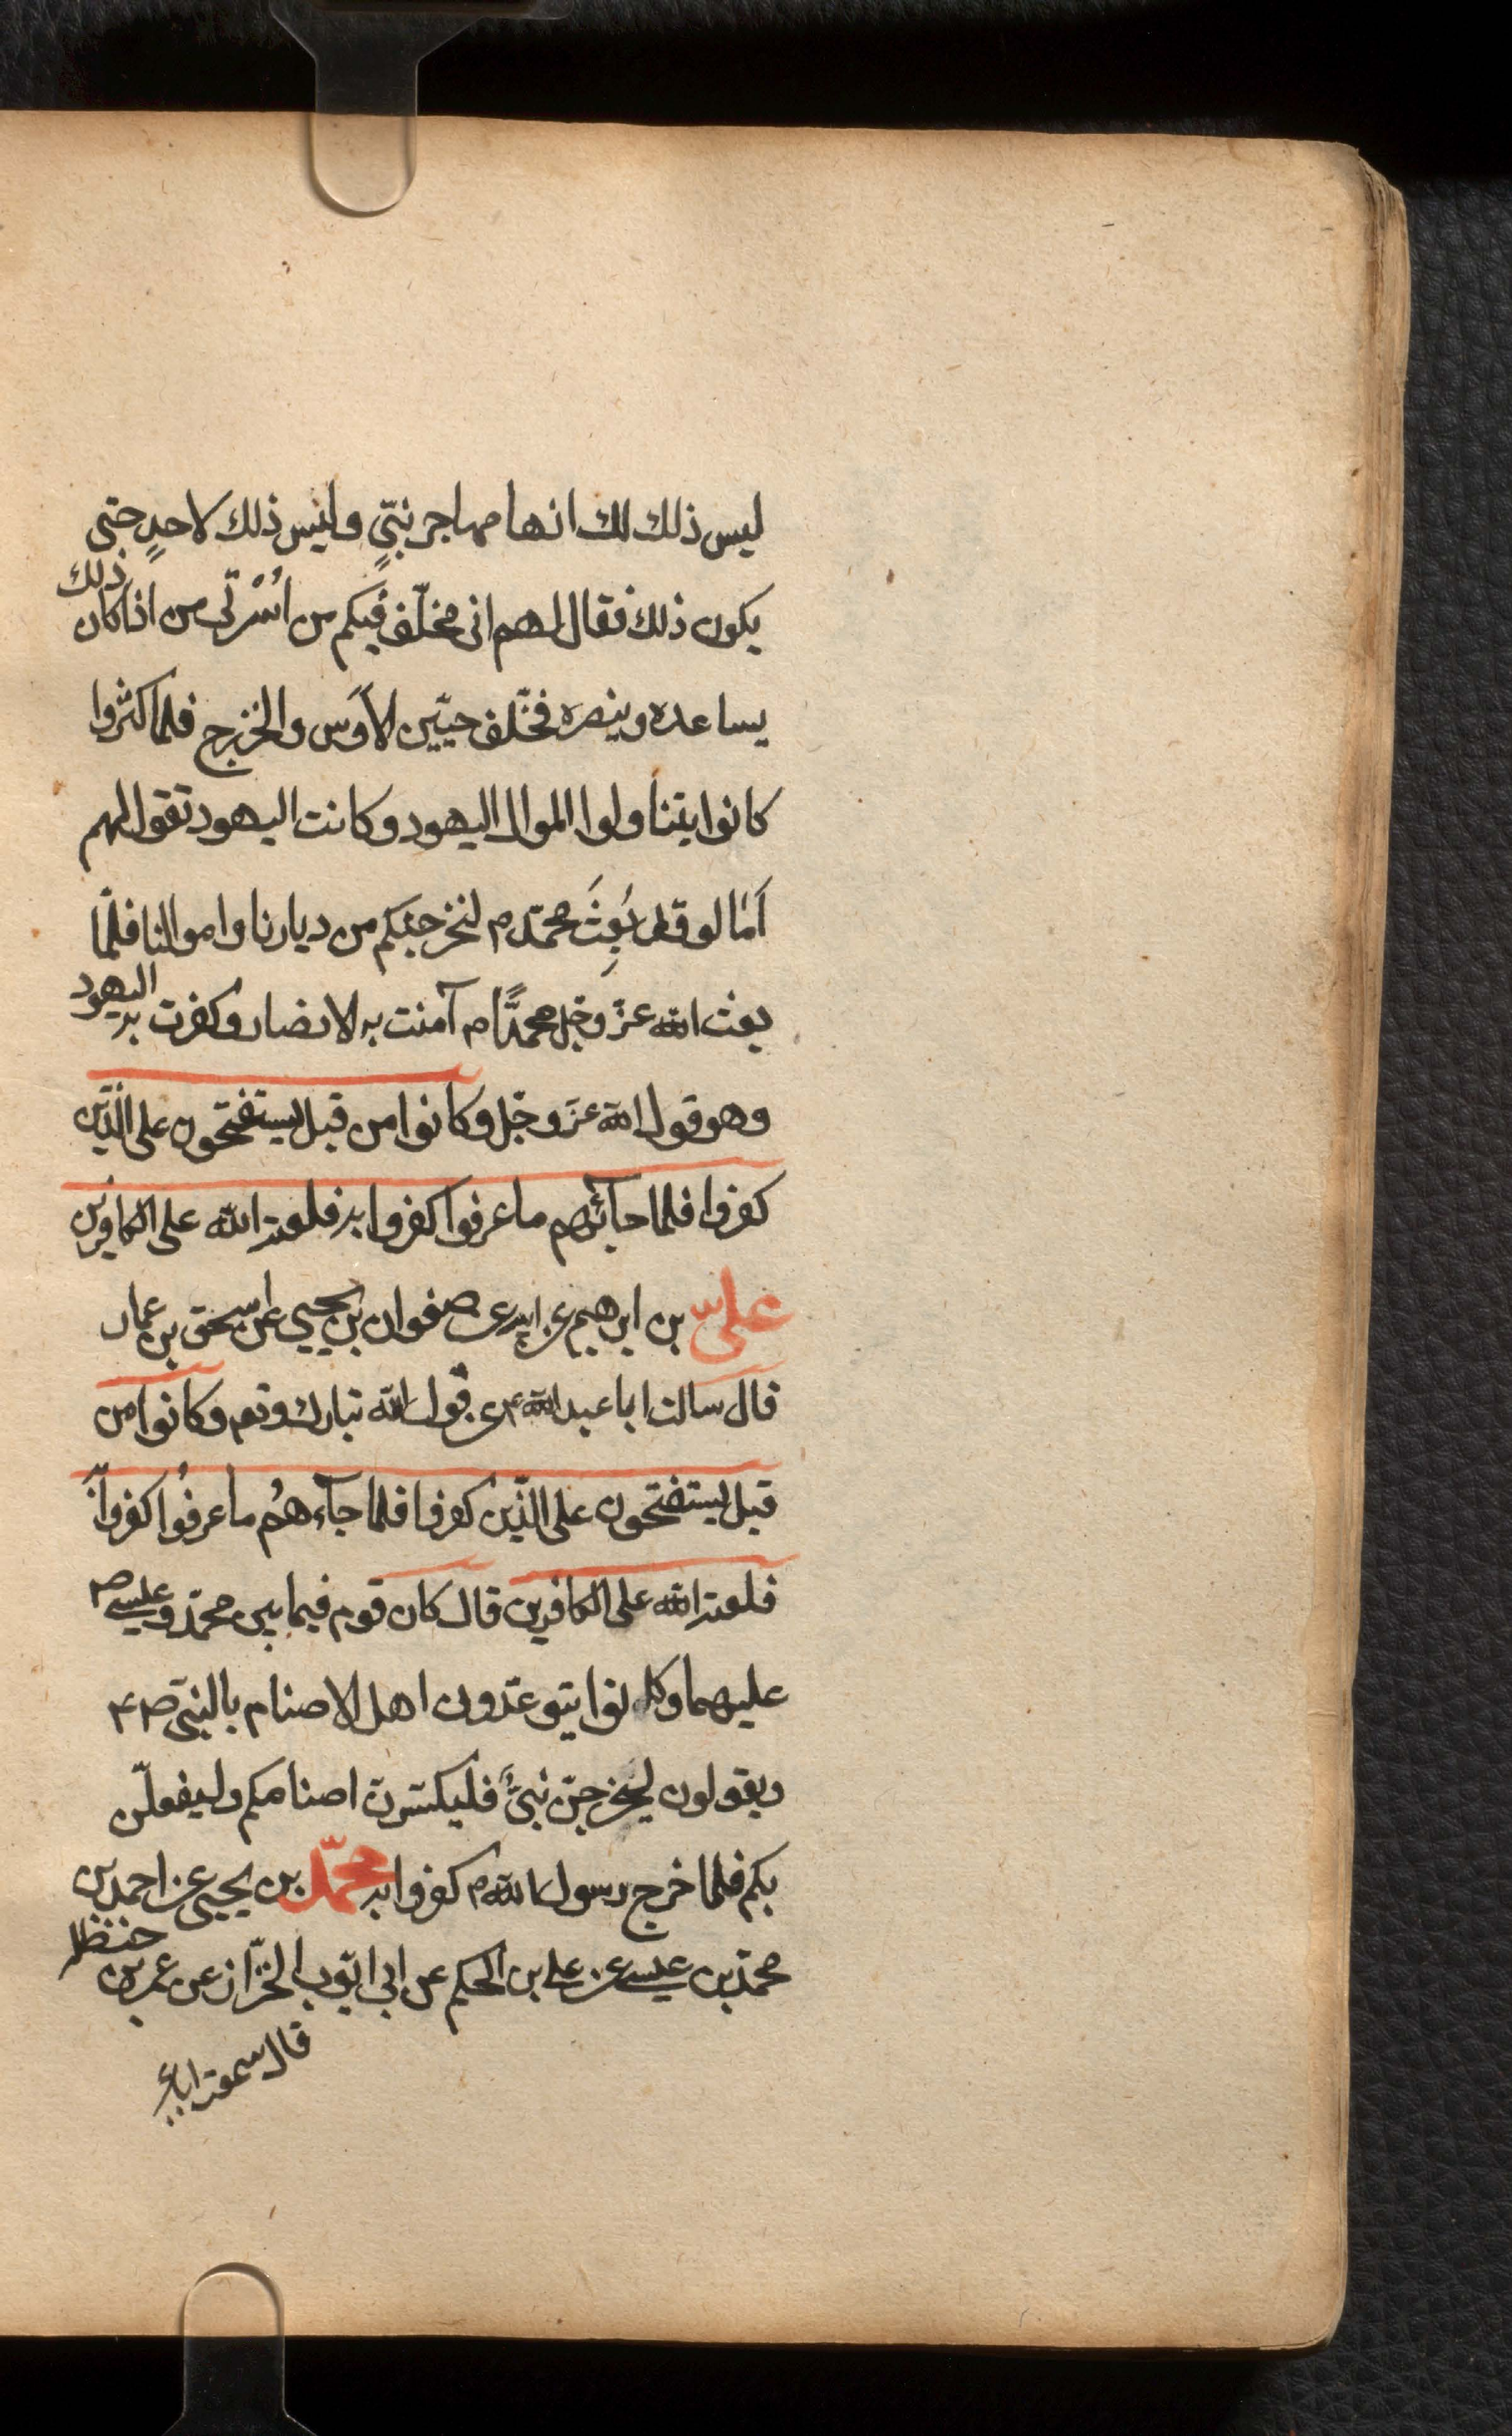 ليس ذلك لك انها مهاجر نبيٍّ وليس ذلك لاحدٍ حتى
يكون ذلك فقال لهم انى مخلّف فيكم من اُسْرتى من اذا كان ذلك
يساعده وينصره فخلّف حيّين الأوَس والخزرج فلما كثروا
كانوا يتناولوا الموال اليهود وكانت اليهود تقول لهم
اَمٰا لو قد بُعِثَ محمّد ص لنخرجنكم من ديارنا واموالنا فلّما
بعث الله عزّ وجل محمدًّا ص آمنت به الانصار وكفرت به اليهود
وهو قول الله عزّ وجّل وكانوا من قبل يستفتحون على الذّين
كفروا فلما جآئهم ما عرفوا كفروا به فلعنة الله على الكافرين
علىّ بن ابرهيم عن ابيه عن صفوان بن يحيى عن اسحق بن عمار
قال سالت ابا عبدالله ع عن قول الله تبارك وتعم وكانوا من
قبل يستفتحون على الذّين كفروا فلما جآءهُم ما عرفُوا كفروا به
فلعنة الله على الكافرين قال كان قوم فيما بين محمّد وعيسى ص
عليهما وكانوا يتوعّدون اهل الاصنام بالنبىّ ص
ويقولون ليخرجنّ نبىٌّ فليكسّرنّ اصنامكم وليفعلّن
بكم فلما خرج رسول الله ص كفروا به محمّد بن يحيى عن احمد بن
محمّد بن عيسى عن على بن الحكم عن ابى ايّوب الخزّاز عن عمر بن حنظلة
قال سمعت ابا